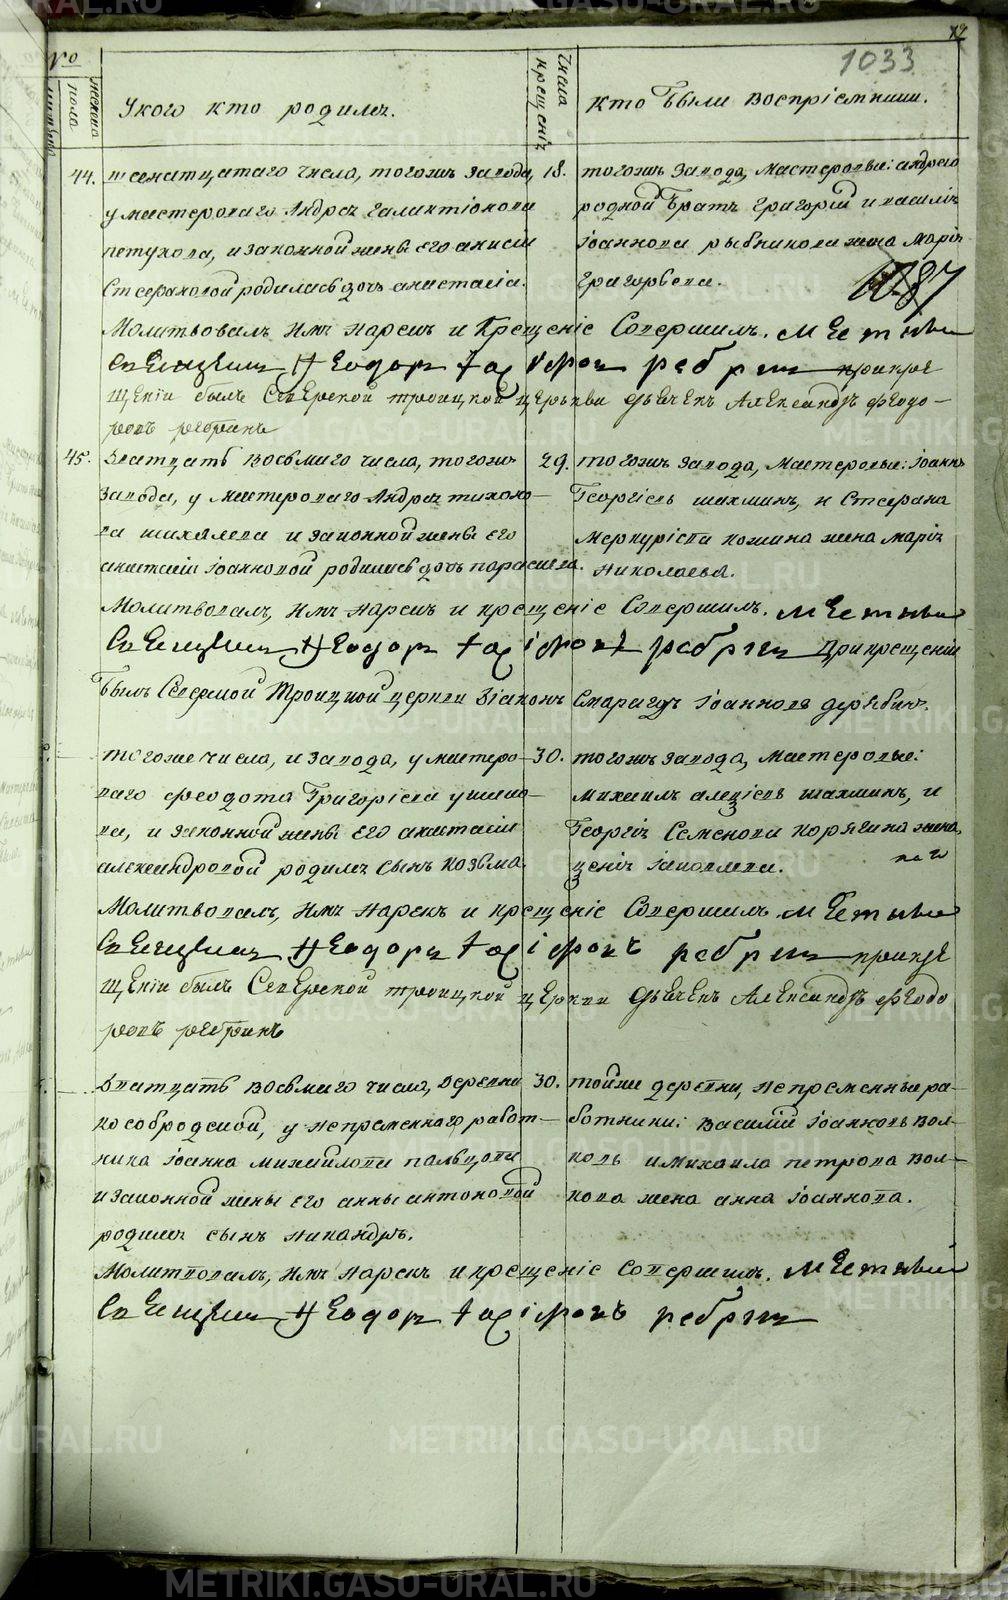 METRIKI.GASO-URAL.RU
1033
№
женска пола
Укого кто родилсѧ.
Числа крещенiѧ
Кто были воспрiемники.
44. тогожъ завода,
у мастероваго Андреѧ Галактiонова
петухова, и законной жены его анисiи
Стефановой родилась дочь анастасiѧ.
18.
тогожъ завода, мастеровые: андреѧ
родной братъ григорiй и василiѧ
Iоаннова рыбникова жена марiѧ
григорьева.
Молитвовалъ, имѧ нарекъ и Крещенiе Совершилъ. Местный
Свѧщенникъ Ѳеодоръ ребринъ прикре
щенiи былъ Северской троицкой церькви дьѧчекъ Александръ Ѳеодо-
ровъ ребринъ
45. Дватцать восьмаго числа, тогожъ
завода, у мастероваго Андреѧ тихоно-
ва шахмева и законной жены его
анастасiи Iоанновой родилась дочь параскева.
29.
тогожъ завода, мастеровые: Iоаннъ
Георгiевъ шахминъ, и Стефана
Меркурiева кожина жена марiѧ
Николаева.
Молитвовалъ, имѧ нарекъ и крещенiе Совершилъ. Местный
Свѧщенникъ Ѳеодоръ ребринъ При крещенiи
былъ Северской Троицкой церкви дiаконъ Смарагдъ Iоанновъ дерѧбинъ.
тогоже числа, и завода, у мастеро-
ваго Ѳеодота Григорiева ушако-
ва, и законной жены его анастасiи
александровой родилсѧ сынъ козьма.
30.
тогожъ завода, мастеровые:
михаилъ алеѯiевъ шахминъ, и
Георгiѧ Семенова корѧгина жена,
ѯенiѧ Iаковлева.
Молитвовалъ, имѧ нарекъ и крещенiе Совершилъ. Местный
Свѧщенникъ Ѳеодоръ ребринъ прикре
щенiи былъ Северской троицкой церкви дьѧчекъ Александръ Ѳеодо
ровъ ребринъ
Дватцать восьмаго числа, деревни
кособродской, у непременнаго работ-
ника Iоанна михайлова пальцова
и законной жены его анны антоновой
родилсѧ сынъ никандръ.
30.
тойже деревни, непременные ра-
ботники: василiй Iоанновъ вол-
ковъ и михаила петрова вол-
кова жена анна Iоаннова.
Молитвовалъ, имѧ нарекъ и крещенiе совершилъ. Местный
Свѧщенникъ Ѳеодоръ ребринъ
METRIKI.GASO-URAL.RU